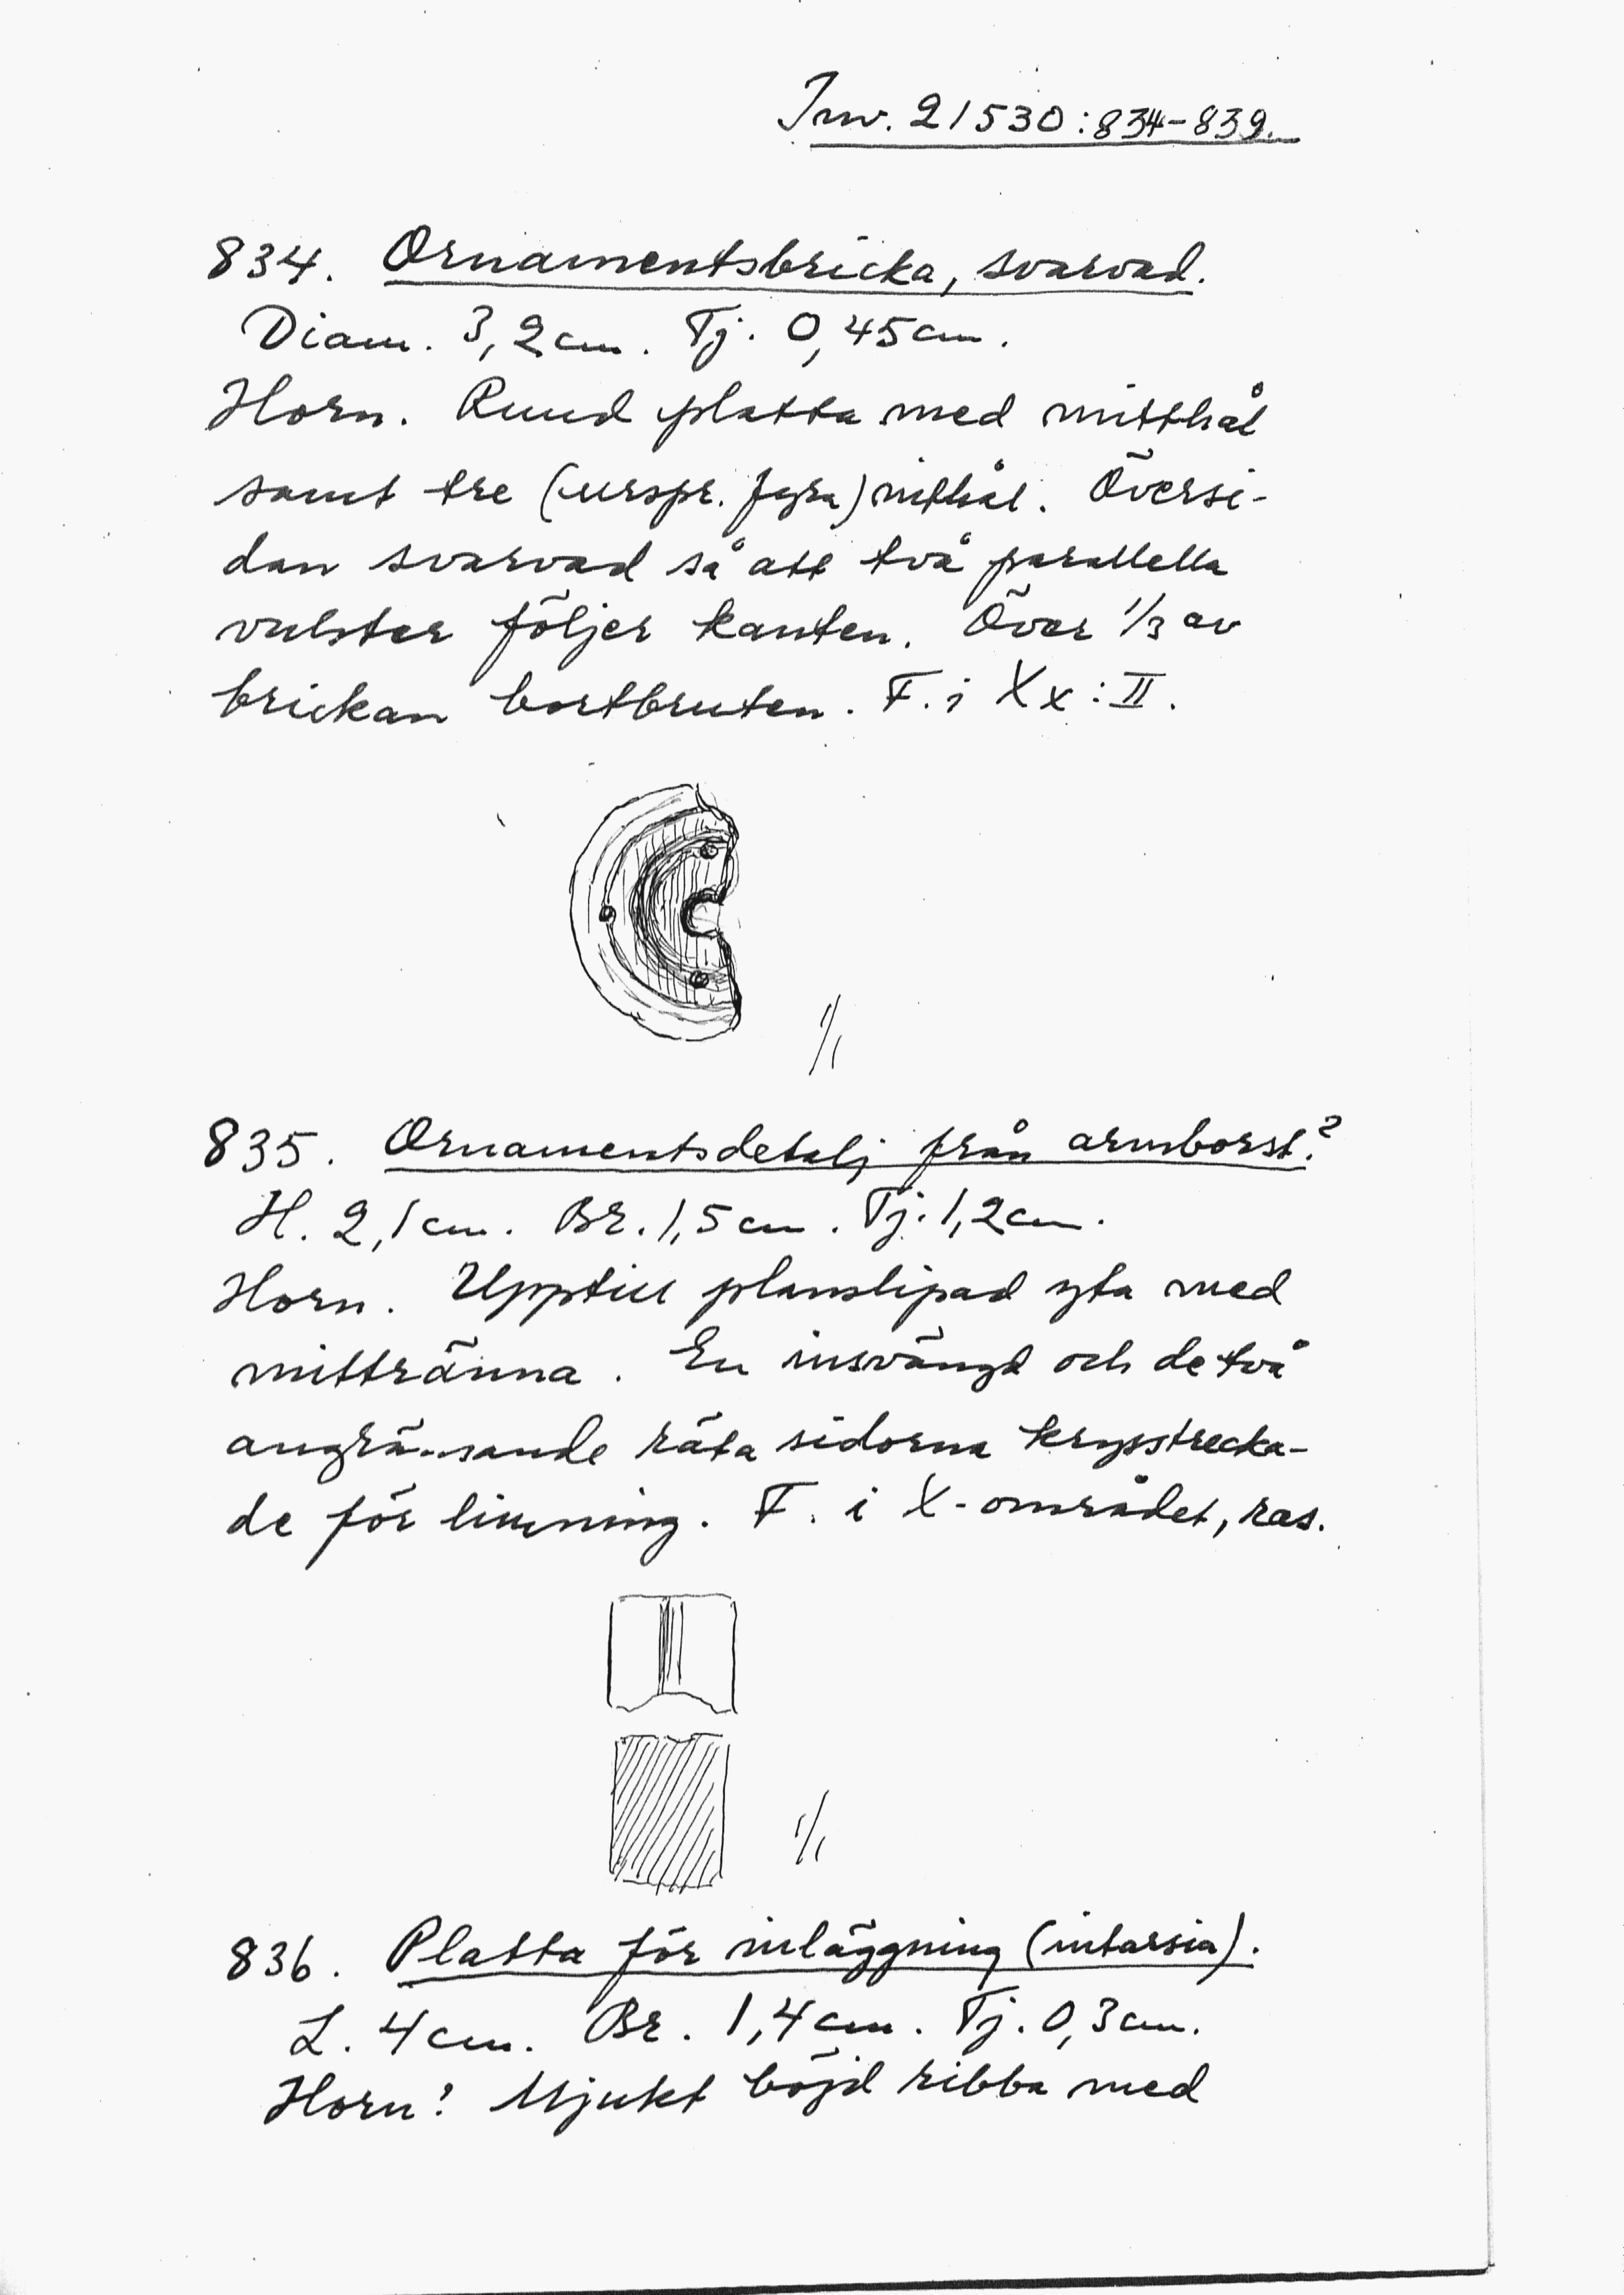 Inv. 21530:834-839.
834. Ornamentsbricka, svarvad.
Diam. 3,2cm. Tj. 0,45cm.
Horn. Rund platta med mitthål
samt tre (urspr. fyra) nithål. Översi-
dan svarvad så att två parallella
vulster följer kanten. Över 1/3 av
brickan bortbruten. F. i Xx:II.
1/1
835. Ornamentsdetalj från armborst?
H. 2,1cm. Br. 1,5cm. Tj. 1,2cm.
Horn. Upptill planslipad yta med
mittränna. En insvängd och de två
angränsande räta sidorna krysstrecka-
de för limning. F. i X-området, ras.
1/1
836. Platta för inläggning (intarsia).
L. 4cm. Br. 1,4cm. Tj. 0,3cm.
Horn? Mjukt böjd ribba med